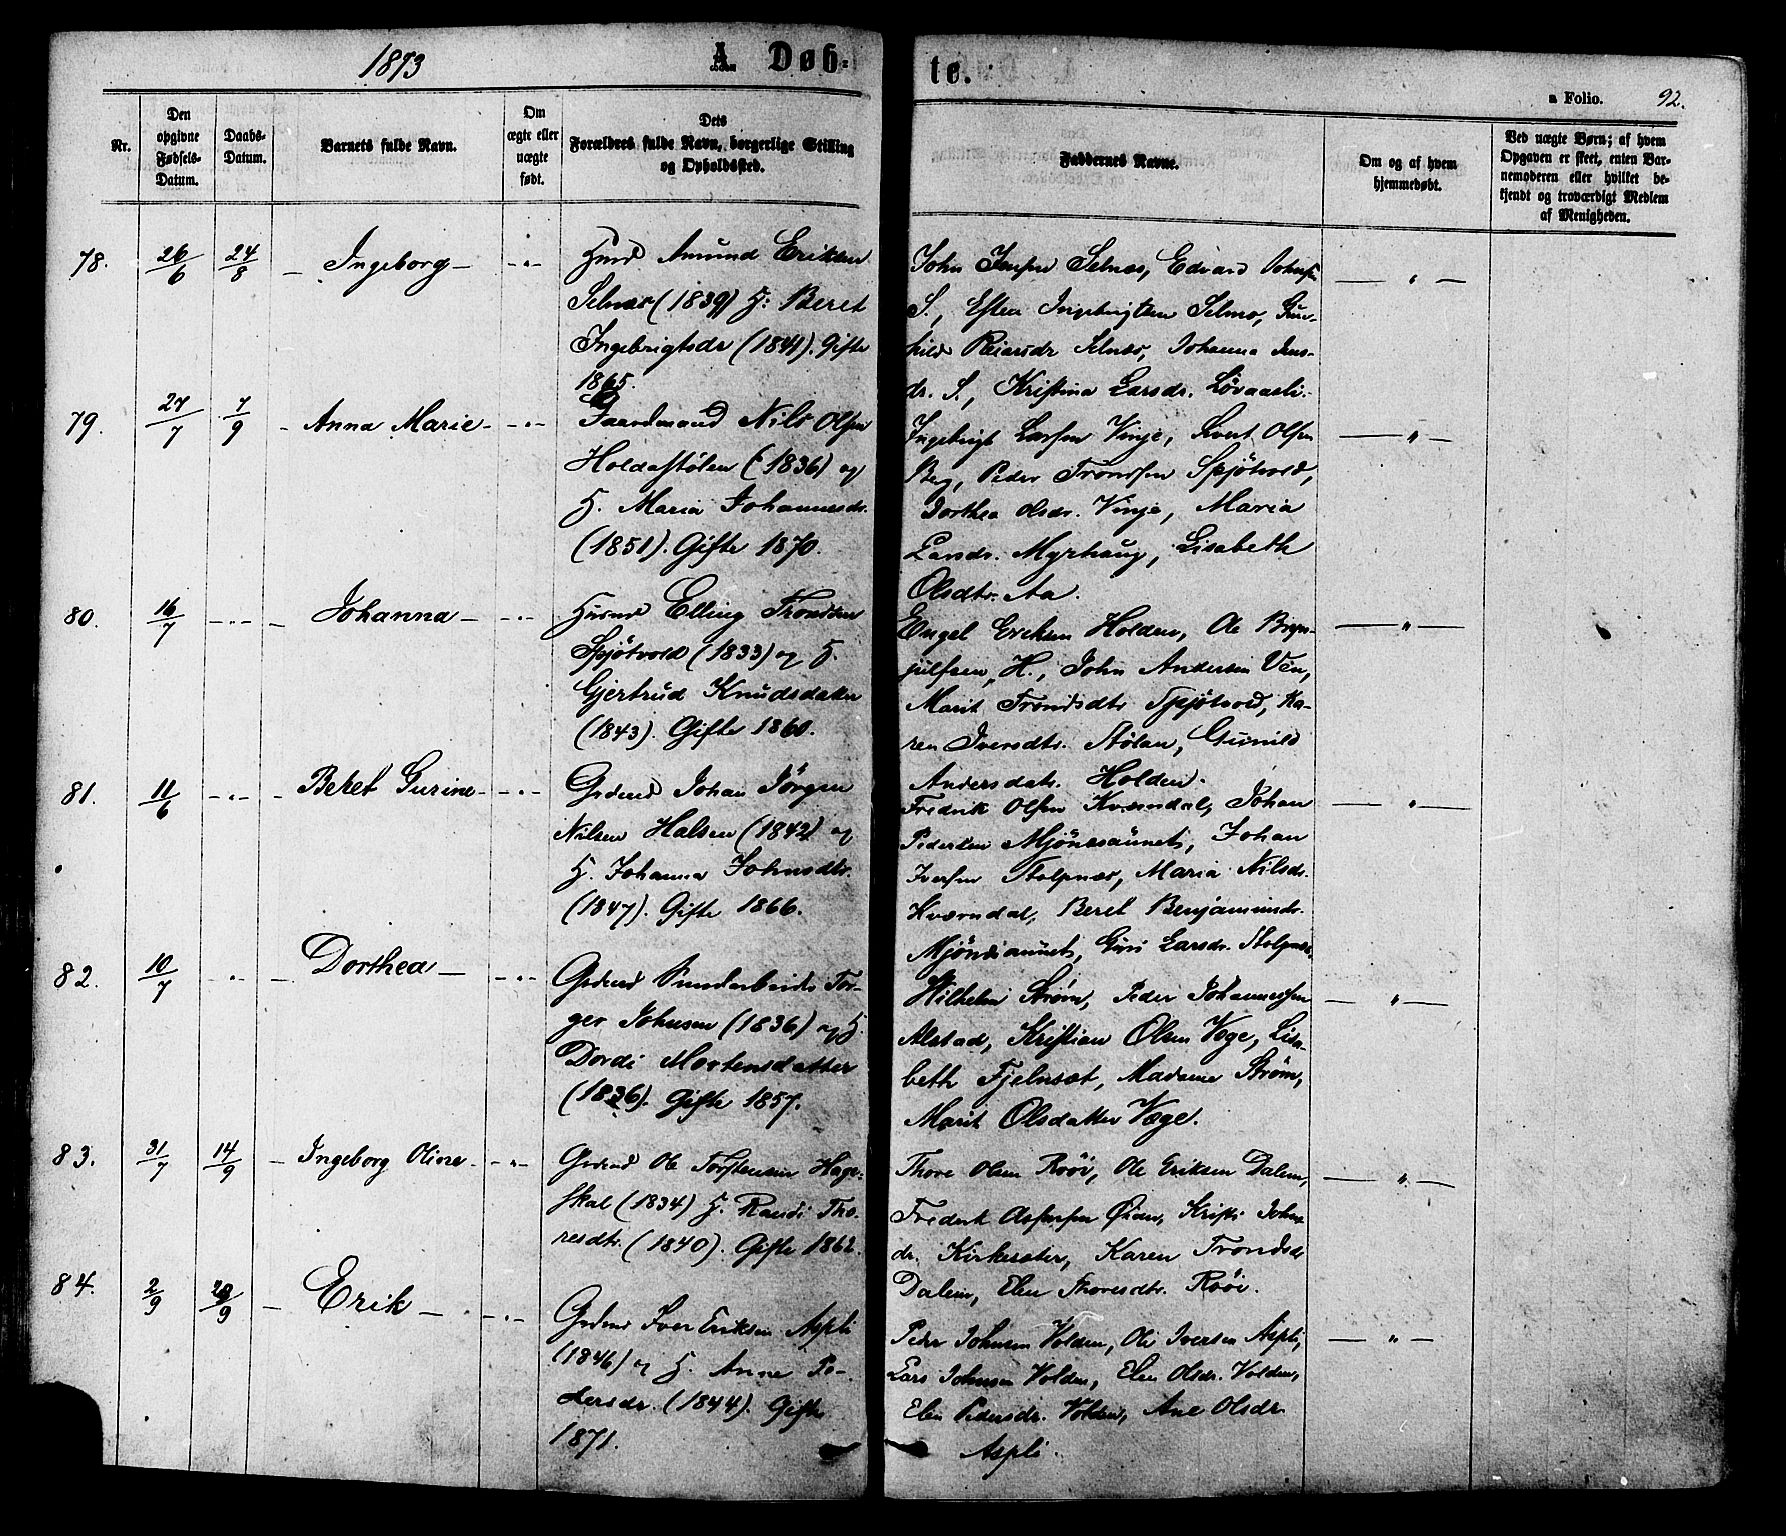 1873
A. Døb-
te.
a Folio. 92.
Nr.
Den opgivne Fødsels-Datum.
Daabs-Datum.
Barnets fulde Navn.
Om ægte eller uægte født.
Dets Forældres fulde Navn, borgerlige Stilling og Opholdssted.
Faddernes Navne.
Om og af hvem hjemmedøbt.
Ved uægte Børn; af hvem Opgaven er skeet, enten Barnemoderen eller hvilket bekjendt og troværdigt Medlem af Menigheden.
78. 26/6 24/8 Ingeborg
Husmd Amund Eriksen
Selnæs (1839) H: Beret
Ingebrigtsdr (1841). Gifte
1865.
John Jensen Selnæs, Edvard Johnsen
S., Esten Ingebrigtsen Selnæs, Gun-
hild Reiarsdr Selnæs, Johanna Jens-
dr. S., Kristina Larsdr. Løvaasli.
79. 27/7 7/9 Anna Marie
Gaardmand Nils Olsen
Holdastølen (1836) og
H. Maria Johannesdr.
(1851). Gifte 1870.
Ingebrigt Larsen Vinje, Sivert Olsen
Berg, Peder Trondsen Spjøtvold,
Dorthea Olsdr. Vinje, Maria
Larsdr. Myrhaug, Lisabeth
Olsdtr. Aa.
80. 16/7 - " - Johanna
Husmd Elling Trondsen
Spjøtvold (1833) og H.
Gjertrud Knudsdatter
(1843). Gifte 1860.
Engel Eriksen Holden, Ole Bryn-
julfsen H., John Andersen Ven,
Marit Trondsdtr Spjøtvold, Ka-
ren Iversdtr. Stølan, Gunild
Andersdatr. Holden.
81. 11/6 - " - Beret Gurine
Grdmd Johan Jørgen
Nilsen Halsen (1842) og
H. Johanna Johnsdtr.
(1847). Gifte 1866.
Fredrik Olsen Kværndal, Johan
Pedersen Mjønessaunet, Johan
Iversen Stolpnæs, Maria Nilsdr.
Kværndal, Beret Benjaminsdr.
Mjønessaunet, Guri Larsdr. Stolpnæs.
82. 10/7 " Dorthea
Grdmd Tor-
ger Johnsen (1836) og H.
Dordi Mortensdatter
(1836). Gifte 1857.
Wilhelm Strøm, Peder Johannessen
Alstad, Kristian Olsen Væge, Lisa-
beth Fjelnset, Madame Strøm,
Marit Olsdatter Væge.
83. 31/7 14/9 Ingeborg Oline
Grdmd Ole Torstensen Hage-
skal (1834) H. Randi Tho-
resdtr. (1840). Gifte 1862.
Thore Olsen Røøi, Ole Eriksen Dalem,
Fredrik Asfersen Øien, Kristi Johns-
dr. Kirkesæter, Karen Trondsdr
Dalem, Elen Thoresdtr. Røøi.
84. 2/9 28/9 Erik
Grdmd Iver Eriksen Aspli
(1846) og H. Anne Pe-
dersdr. (1844). Gifte
1871.
Peder Johnsen Volden, Ole Iversen Aspli,
Lars Johnsen Volden, Elen Olsdr. Volden,
Elen Pedersdr. Volden, Ane Olsdr.
Aspli